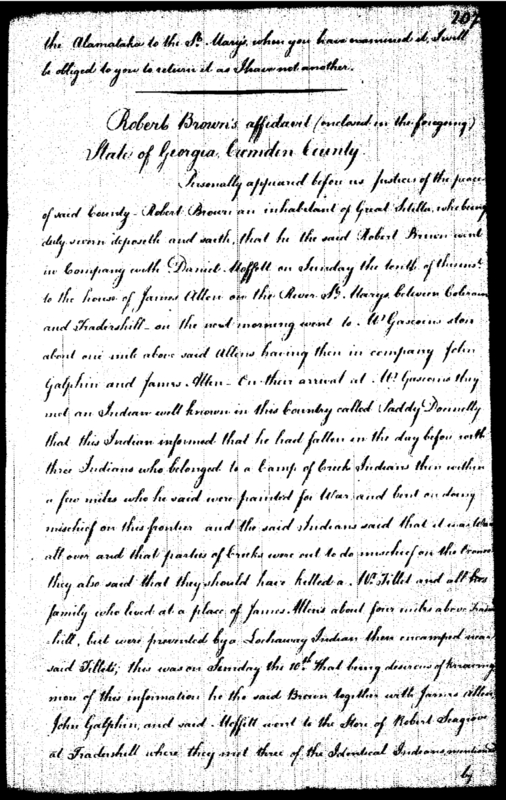 207
the Alamataha to the St. Marys, when you have examined it, I will
be obliged to you to return it as I have not another.
Robert Brown's affidavit (enclosed in the foregoing)
State of Georgia Camden County.
Personally appeared before us Justices of the peace
of said County - Robert Brown an inhabitant of Great Sitilla, who being
duly sworn deposeth and saith, that he the said Robert Brown went
in Company with Daniel Moffitt on Sunday the tenth of the inst.
to the house of James Allen on the River St. Marys between Colerain
and Tradershill - on the next morning went to Mr. Gascoins store
about one mile above said Allens having then in company John
Galphin and James Allen - On their arrival at Mr. Gascoins they
met an Indian well known in this Country called Paddy Donnelly
that this Indian informed that he had fallen in the day before with
three Indians who belonged to a Camp of Creek Indians then within
a few miles who he said were painted for War and bent on doing
mischief on this frontier and the said Indians said that it was War
all over and that parties of Creeks were out to do mischief on the Oconee
they also said that they should have killed a Mr. Tillet and all his
family who lived at a place of James Allens about four miles above Traders
hill, but were prevented by a Lochaway Indian then encamped near
said Tillets; this was on Sunday the 10th. That being desirous of knowing
more of this information he the said Brown together with James Allen
John Galphin, and said Moffitt went to the Store of Robert Seagrove
at Tradershill where they met three of the Identical Indians mentioned
by